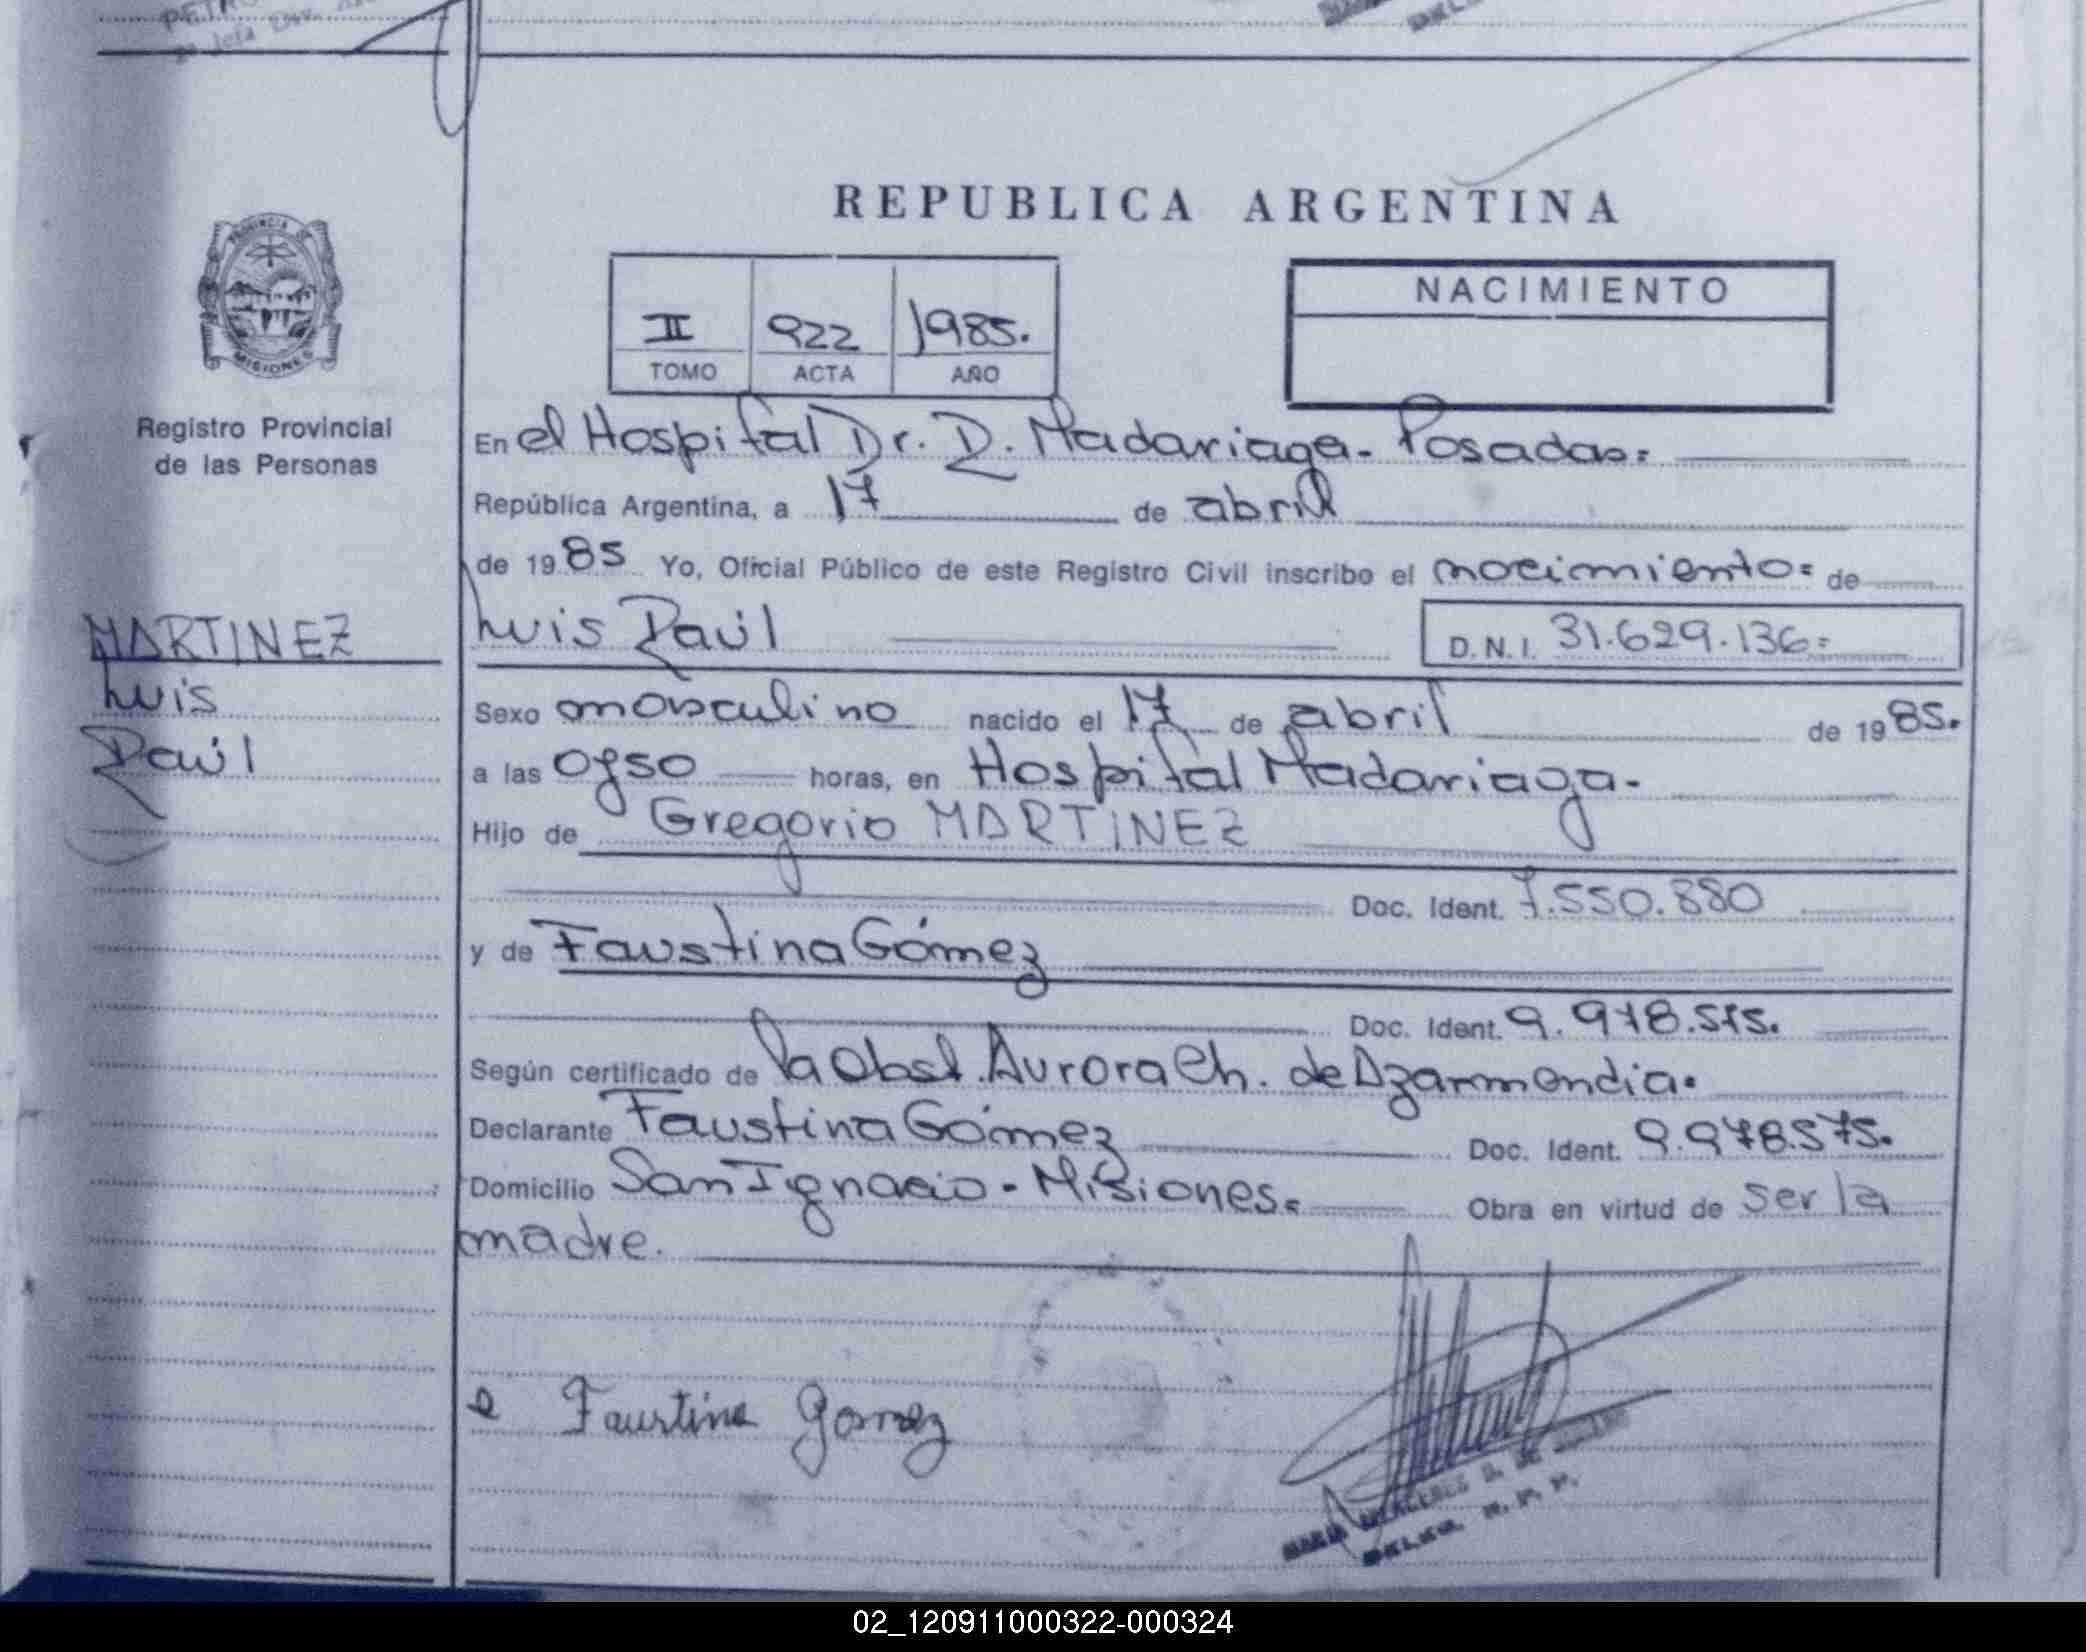 REPUBLICA ARGENTINA
PROVINCIA DE
MISIONES
Registro Provincial
de las Personas
II 922 1985.
TOMO ACTA AÑO
NACIMIENTO
En el Hospital Dr. R. Madariaga - Posadas=
República Argentina, a 17 de abril
de 1985 Yo, Oficial Público de este Registro Civil inscribo el nacimiento= de
MARTINEZ
Luis
Raúl
Luis Raúl
D.N.I. 31.629.136=
Sexo masculino nacido el 17 de abril de 1985.
a las 0750 horas, en Hospital Madariaga.
Hijo de Gregorio MARTINEZ
Doc. Ident. 7.550.880
y de Faustina Gómez
Doc. Ident. 9.978.575.
Según certificado de la Obst. Aurora Ch. de Azarmendia.
Declarante Faustina Gómez Doc. Ident. 9.978.575.
Domicilio San Ignacio - Misiones= Obra en virtud de ser la
madre.
Faustina Gomez
MARIA
R. P. P.
02_120911000322-000324